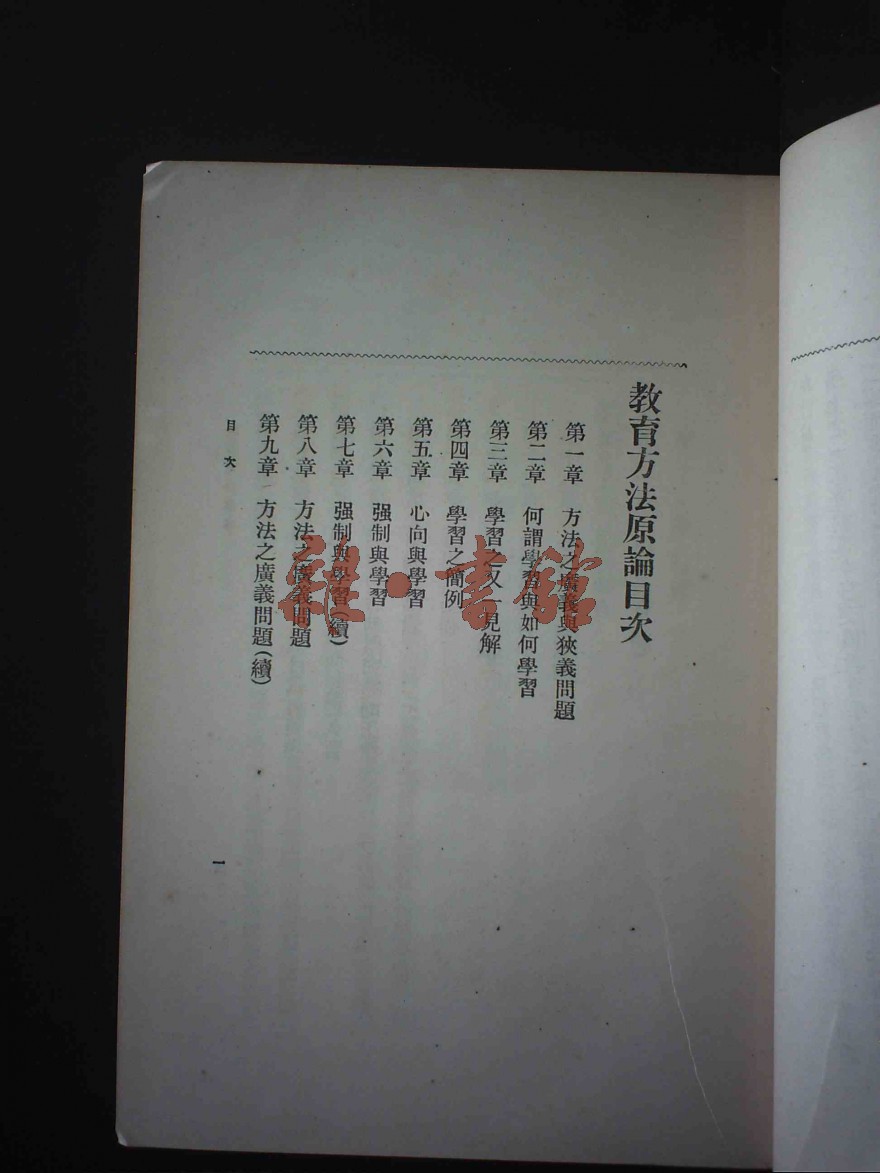 教育方法原論目次
第一章　方法之廣義與狹義問題
第二章　何謂學習與如何學習
第三章　學習之又一見解
第四章　學習之簡例
第五章　心向與學習
第六章　强制與學習
第七章　强制與學習(續)
第八章　方法之廣義問題
第九章　方法之廣義問題(續)
目次
一
雜·書館